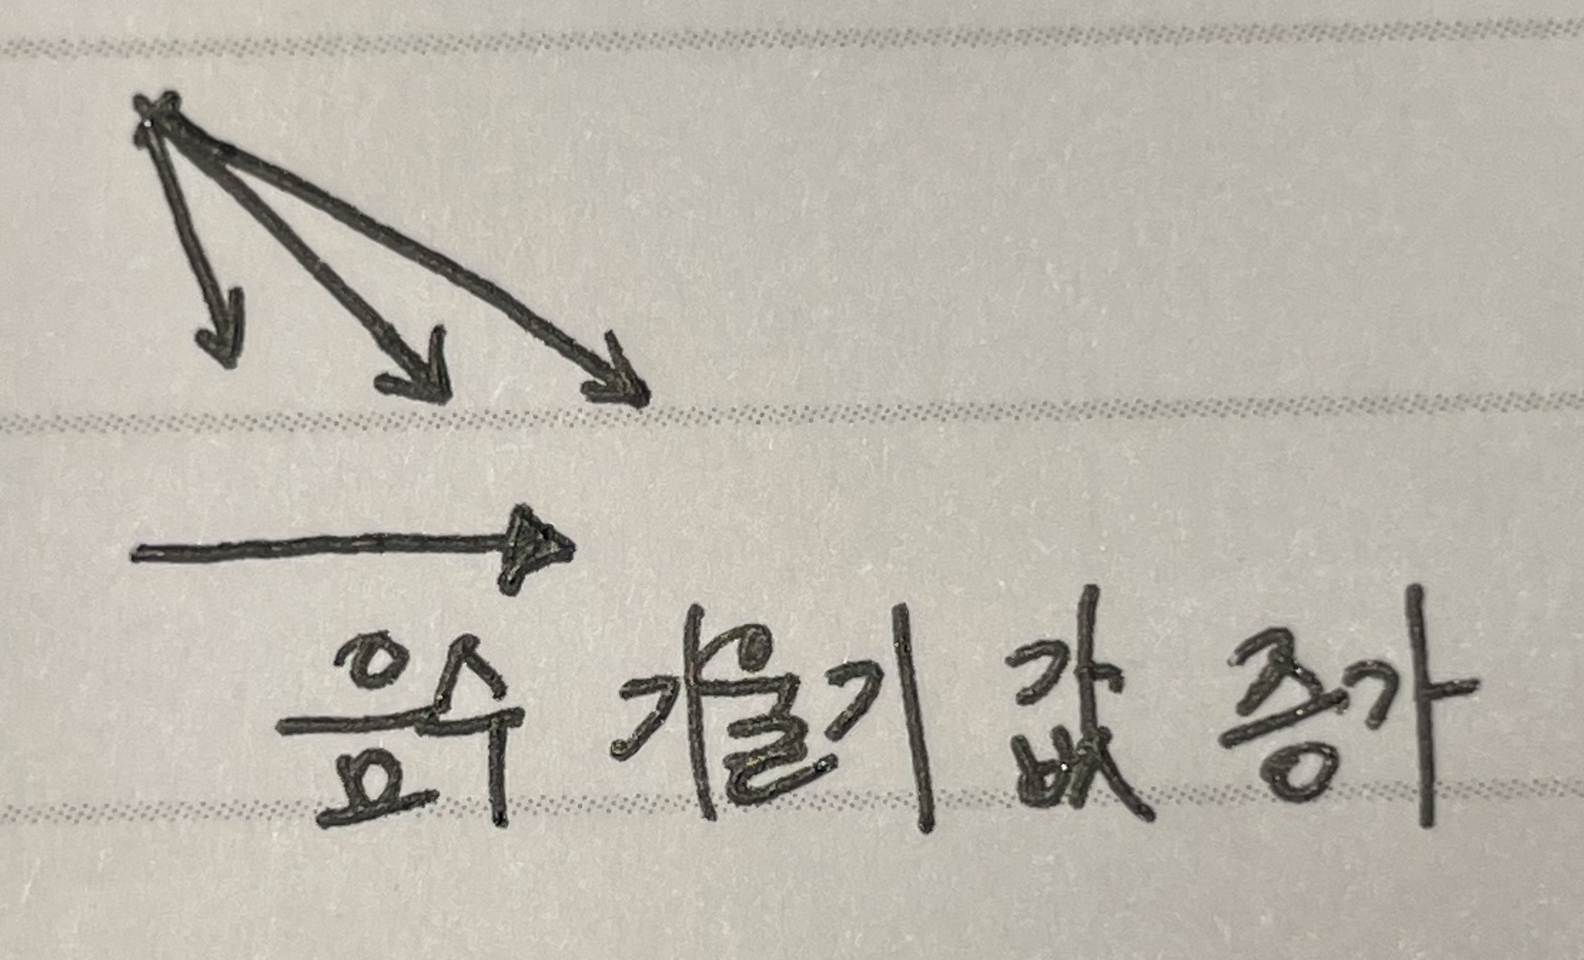 음수 기울기 값 증가